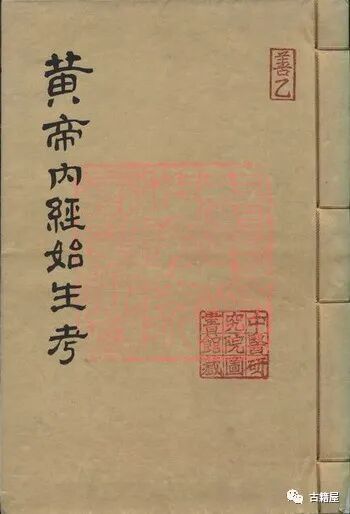 黄帝内經始生考
善乙
中醫研
究院圖
書館藏
古籍屋